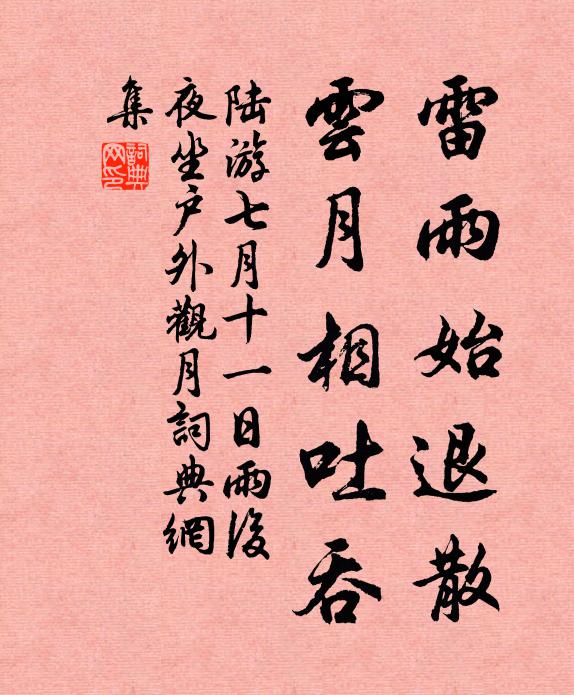 雷雨始退散
雲月相吐吞
陆游七月十一日雨後
夜坐户外觀月詞典網
集
詞典
网印